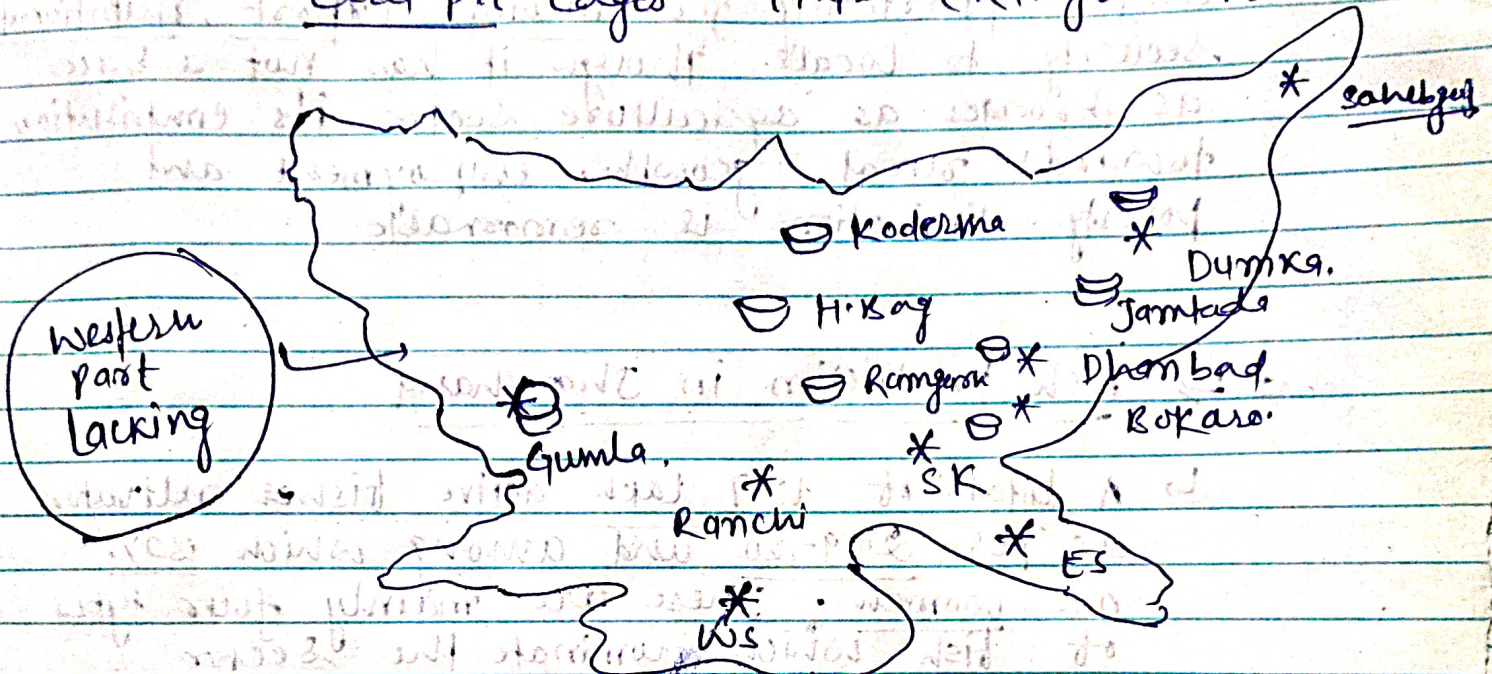 Coal pit Cages
Sahebgunj
Koderma
Dumka.
H.Bag
Jamtada
Western
part
lacking
Ramgarh
Dhanbad.
Bokaro.
Gumla.
SK
Ranchi
ES
WS